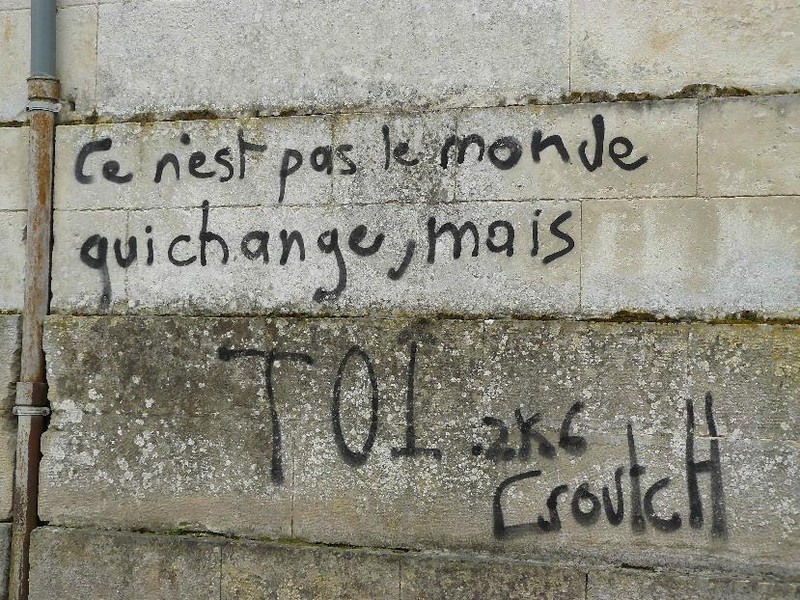 Ce n'est pas le monde
qui change, mais
TOI .2K6
CroutcH